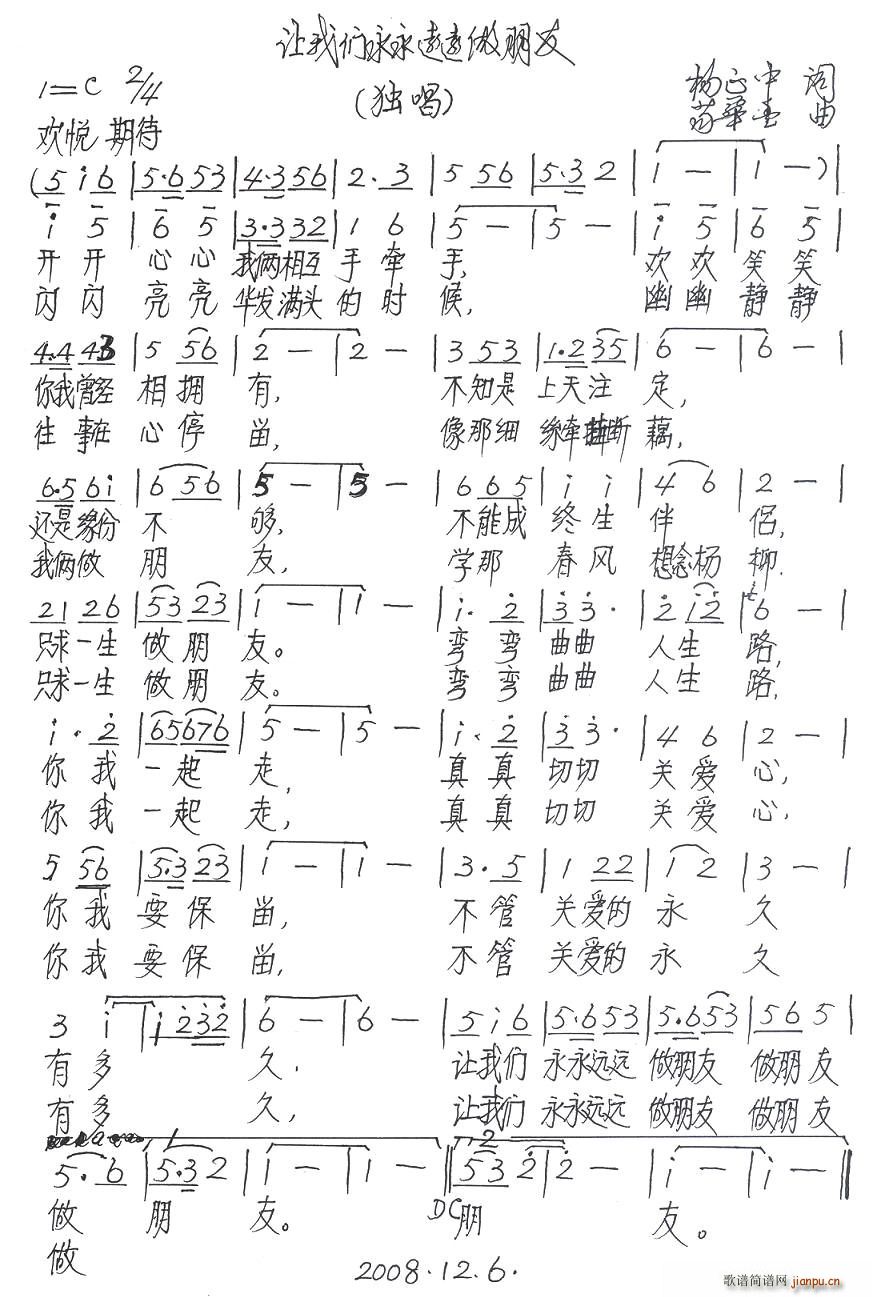 让我们永永远远做朋友
1=C 2/4
(独唱)
杨正中 词
曲
欢悦 期待
(5 i 6 | 5·6 53 | 4·3 56 | 2· 3 | 5 56 | 5·3 2 | 1 — | 1 — )|
i 5 | 6 5 | 3·3 32 | 1 6 | 5 — | 5 — | i 5 | 6 5
开开 心心 我俩相互 手牵 手, 欢欢 笑笑
闪闪 亮亮 华发满头 的时 候, 幽幽 静静
4·4 43 | 5 56 | 2 — | 2 — | 3 53 | 1·2 35 | 6 — | 6 — |
你我曾经 相拥 有, 不知是 上天注 定,
往事在 心停 留, 像那细 缘牵断 藕,
6·5 6i | 6 56 | 5 — | 5 — | 6 65 | i i | 4 6 | 2 — |
还是缘份 不 够, 不能成 终生 伴 侣,
我俩做 朋 友, 学那 春风 想念杨 柳.
21 26 | 53 23 | 1 — | 1 — | i· 2 | 3 3· | 2 i2 | 6 — |
只求一生 做朋 友。 弯弯 曲曲 人生 路,
只求一生 做朋 友。 弯弯 曲曲 人生 路,
i· 2 | 65 676 | 5 — | 5 — | i· 2 | 3 3· | 4 6 | 2 — |
你我 一起 走, 真真 切切 关爱 心,
你我 一起 走, 真真 切切 关爱 心,
5 56 | 5·3 23 | 1 — | 1 — | 3· 5 | 1 22 | 1 2 | 3 — |
你我 要保 留, 不管 关爱的 永 久
你我 要保 留, 不管 关爱的 永 久
3 i | i 232 | 6 — | 6 — | 5 i6 | 5·6 53 | 5·6 53 | 56 5 |
有多 久. 让我们 永永远远 做朋友 做朋友
有多 久, 让我们 永永远远 做朋友 做朋友
5· 6 | 5·3 2 | 1 — | 1 — || 53 2 | 2 — | i — | i — ||
做 朋 友。 DC 朋 友。
做
2008.12.6.
歌谱简谱网 jianpu.cn